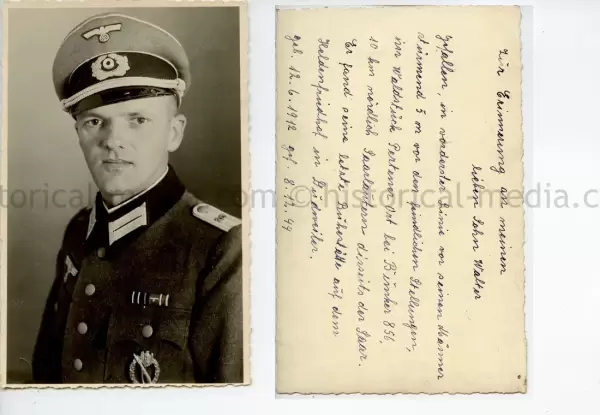 Zur Erinnerung an meinen
lieben Sohn Walter
Gefallen, in vorderster Linie vor seinen Männer
stürmend 5 m vor den feindlichen Stellungen,
im Waldstück bei Bunker 856,
10 km nördlich Saarlautern disseits der Saar.
Er fand seine letzte Ruhestätte auf dem
Heldenfriedhof in
geb. 12.6.1912 gef. 8.12.44
© historical-media.c